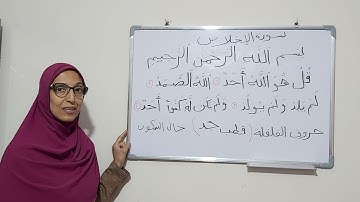 سورة الإخلاص
بسم الله الرحمن الرحيم
قُلْ هُوَ اللَّهُ أَحَدٌ ۝ اللَّهُ الصَّمَدُ ۝
لَمْ يَلِدْ وَلَمْ يُولَدْ ۝ وَلَمْ يَكُن لَهُ كُفُوًا أَحَدٌ ۝
حروف القلقلة ( قطب جد ) حال السكون